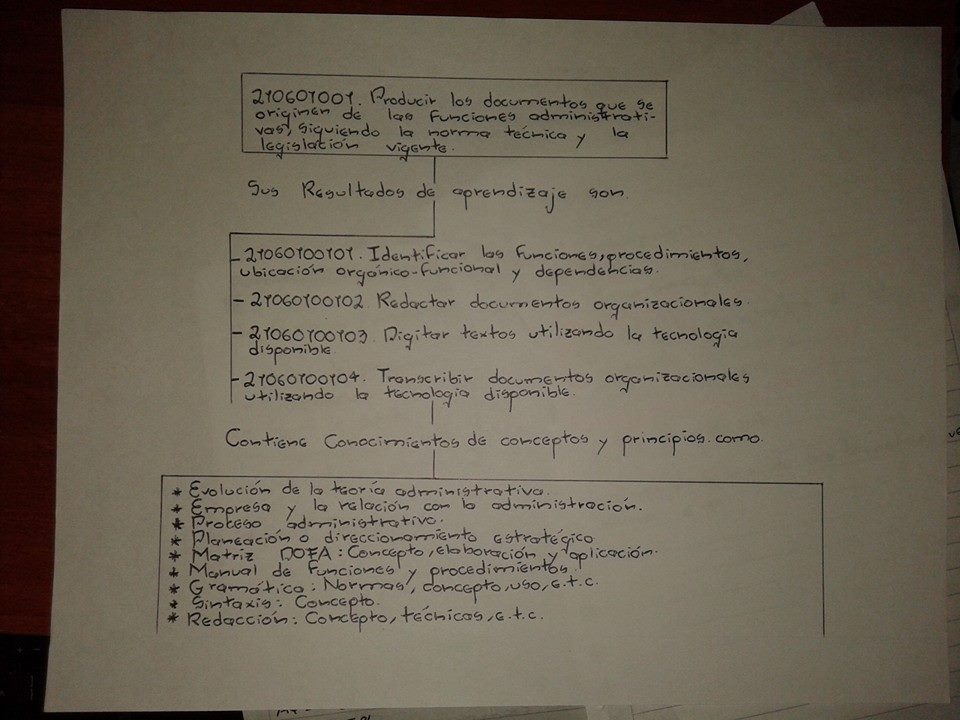 210601001. Producir los documentos que se
originen de las funciones administrati-
vas, siguiendo la norma técnica y la
legislación vigente.
Sus Resultados de aprendizaje son.
- 21060100101. Identificar las funciones, procedimientos,
ubicación orgánico-funcional y dependencias.
- 21060100102 Redactar documentos organizacionales.
- 21060100103 Digitar textos utilizando la tecnología
disponible.
- 21060100104. Transcribir documentos organizacionales
utilizando la tecnología disponible.
Contiene Conocimientos de conceptos y principios. como.
* Evolución de la teoría administrativa.
* Empresa y la relación con la administración.
* Proceso administrativo.
* Planeación o direccionamiento estratégico
* Matriz DOFA: Concepto, elaboración y aplicación.
* Manual de funciones y procedimientos.
* Gramática: Normas, concepto, uso, e.t.c.
* Sintaxis: Concepto.
* Redacción: Concepto, técnicas, e.t.c.